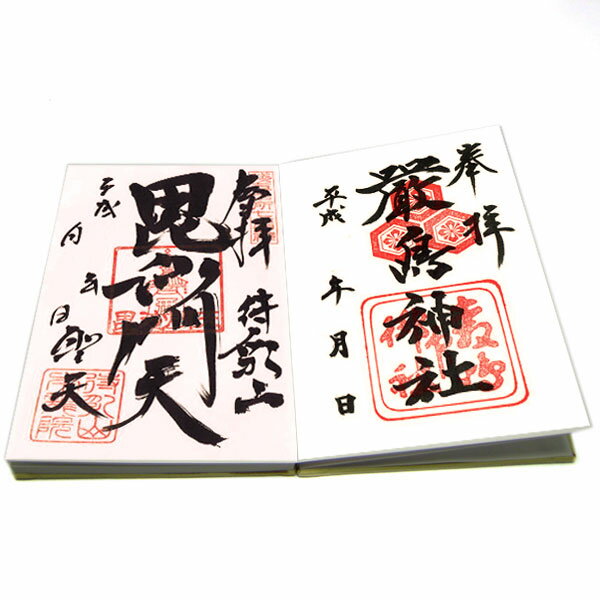 奉拝
厳島神社
平成 年 月 日
奉拝
待乳山
毘沙門天
平成 年 月 日
聖天